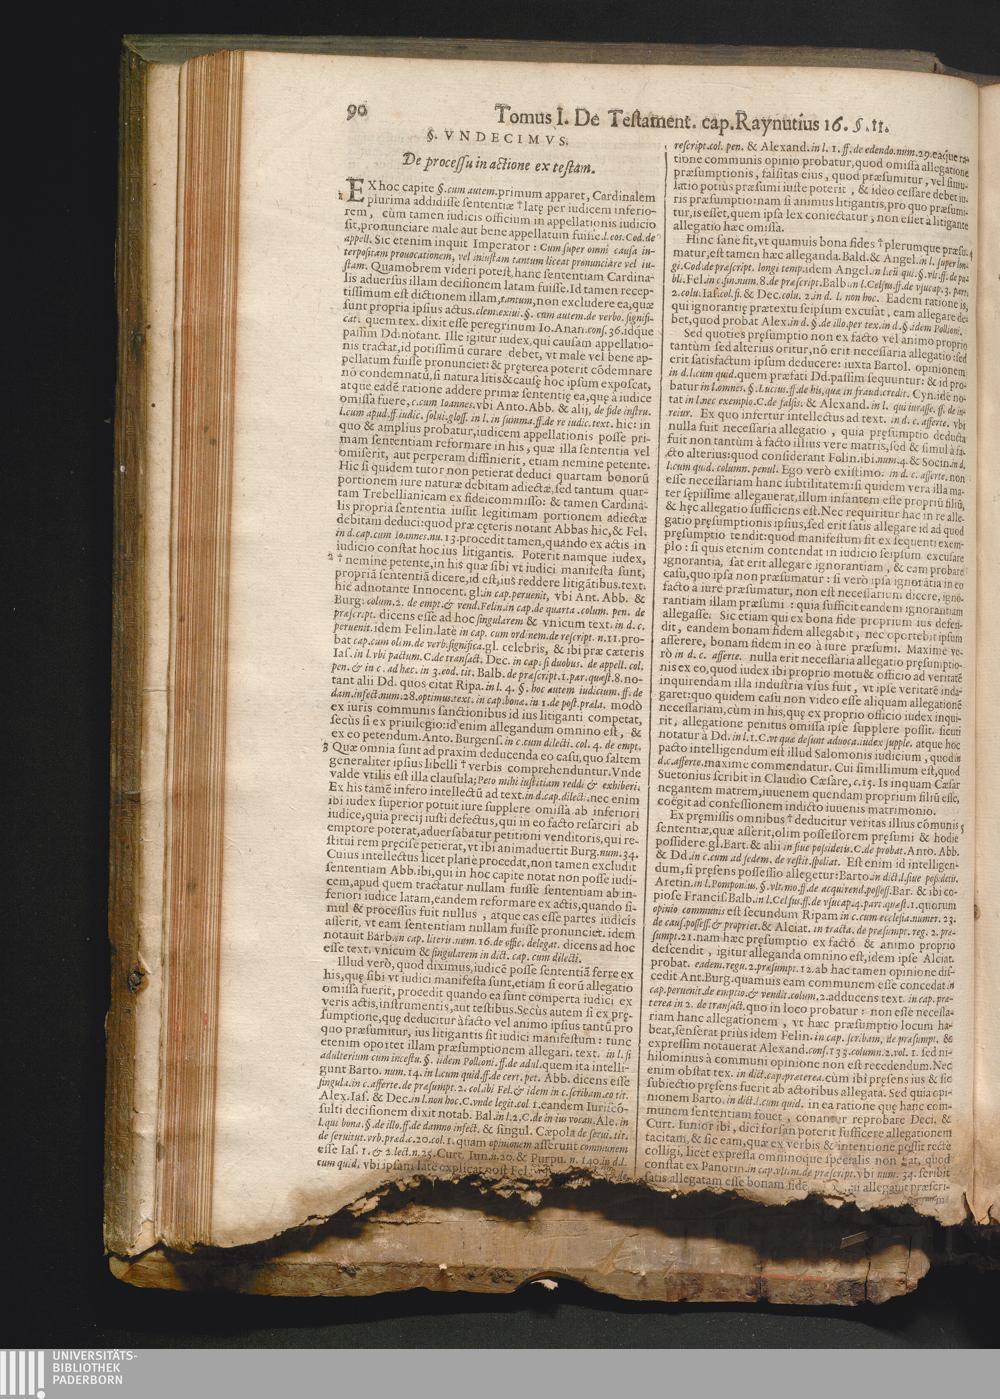 90
Tomus I. De Teſtament. cap.Raynutius 16. §.11.
§. VNDECIMVS.
De proceſſu in actione ex teſtam.
1 EX hoc capite §.cum autem.primum apparet, Cardinalem
plurima addidiſſe ſententiæ † latę per iudicem inferio-
rem, cùm tamen iudicis officium in appellationis iudicio
ſit,pronunciare male aut bene appellatum fuiſſe.l.eos.Cod.de
appell. Sic etenim inquit Imperator: Cum ſuper omni cauſa in-
terpoſitam prouocationem, vel iniuſtam tantum liceat pronunciare vel iu-
ſtam. Quamobrem videri poteſt,hanc ſententiam Cardina-
lis aduerſus illam deciſionem latam fuiſſe.Id tamen recep-
tiſſimum eſt dictionem illam,tantum,non excludere ea,quæ
ſunt propria ipſius actus.clem.exiui.§. cum autem.de verbo.ſignifi-
cat. quem tex. dixit eſſe peregrinum Io.Anan.conſ.36.idque
paſſim Dd.notant. Iſſe igitur iudex,qui cauſam appellatio-
nis tractat,id potiſſimũ curare debet, vt male vel bene ap-
pellatum fuiſſe pronunciet: & pręterea poterit cõdemnare
nõ condemnatũ,ſi natura litis&cauſę hoc ipſum expoſcat,
atque eadẽ ratione addere primæ ſententię ea,quę à iudice
omiſſa fuere, c.cum Ioannes.vbi Anto.Abb. & alij, de fide inſtru.
l.cum apud.ff.iudic. ſolui.gloſſ. in l. in ſumma.ff.de re iudic.text. hic: in
quo & amplius probatur,iudicem appellationis poſſe pri-
mam ſententiam reformare in his, quæ illa ſententia vel
omiſerit, aut perperam diffinierit, etiam nemine petente.
Hic ſi quidem tutor non petierat deduci quartam bonorũ
portionem iure naturæ debitam adiectæ,ſed tantum quar-
tam Trebellianicam ex fideicommiſſo: & tamen Cardina-
lis propria ſententia iuſſit legitimam portionem adiectæ
debitam deduci:quod præ cęteris notant Abbas hic,& Fel.
in d.cap.cum Ioannes.nu.13.procedit tamen,quando ex actis in
iudicio conſtat hoc ius litigantis. Poterit namque iudex,
2 † nemine petente,in his quæ ſibi vt iudici manifeſta ſunt,
propriã ſententiã dicere,id eſt,ius reddere litigãtibus.text.
hic adnotante Innocent. gl.in cap.peruenit, vbi Ant. Abb. &
Burg. colum.2. de empt.& vend.Felin.in cap.de quarta .colum. pen. de
præſcript. dicens eſſe ad hoc ſingularem & vnicum text. in d. c.
peruenit.idem Felin.latè in cap. cum ordinem.de reſcript. n.11.pro-
bat cap.cum olim.de verb.ſignifica.gl. celebris, & ibi præ cæteris
Iaſ. in l.vbi pactum.C.de tranſact. Dec. in cap. ſi duobus. de appell. col.
pen. & in c . ad hæc. in 3.eod. tit. Balb. de præſcript.1.par.quæſt.8.no-
tant alij Dd. quos citat Ripa.in l. 4. §. hoc autem iudicium. ff. de
dam.infect.num.28.optimus.text.in cap.bona. in 1.de poſt.præla. modò
ex iuris communis ſanctionibus id ius litiganti competat,
ſecùs ſi ex priuilegio:id enim allegandum omnino eſt, &
ex eo petendum.Anto. Burgenſ. in c.cum dilecti. col. 4. de empt.
3 Quæ omnia ſunt ad praxim deducenda eo caſu,quo ſaltem
generaliter ipſius libelli † verbis comprehenduntur.Vnde
valde vtilis eſt illa clauſula; Peto mihi iuſtitiam reddi & exhiberi.
Ex his tamẽ infero intellectũ ad text.in d.cap.dilecti.nec enim
ibi iudex ſuperior potuit iure ſupplere omiſſa ab inferiori
iudice,quia precij iuſti defectus,qui in eo facto reſarciri ab
emptore poterat,aduerſabatur petitioni venditoris,qui re-
ſtitui rem pręciſe petierat,vt ibi animaduertit Burg.num.34.
Cuius intellectus licet planè procedat,non tamen excludit
ſententiam Abb.ibi,qui in hoc capite notat non poſſe iudi-
cem,apud quem tractatur nullam fuiſſe ſententiam ab in-
feriori iudice latam,eandem reformare ex actis,quando ſi-
mul & proceſſus fuit nullus , atque eas eſſe partes iudicis
aſſerit, vt eam ſententiam nullam fuiſſe pronunciet. idem
notauit Barb.in cap. literis.num.16.de offic. delegat. dicens ad hoc
eſſe text. vnicum & ſingularem in dict. cap. cum dilecti.
Illud verò,quod diximus,iudicẽ poſſe ſententiã ferre ex
his,quę ſibi vt iudici manifeſta ſunt,etiam ſi eorũ allegatio
omiſſa fuerit, procedit quando ea ſunt comperta iudici ex
veris actis,inſtrumentis,aut teſtibus.Secùs autem ſi ex pre-
ſumptione,quę deducitur à facto vel animo ipſius tantũ pro
quo præſumitur, ius litigantis ſit iudici manifeſtum: tunc
etenim oportet illam præſumptionem allegari. text. in l. ſi
adulterium cum inceſtu. §. iidem Pollioni.ff.de adul.quem ita intelli-
gunt Barto. num.14.in l.cum quid.ff.de cert.pet. Abb. dicens eſſe
ſingula.in c.afferte.de præſumpt.2. col.ibi Fel.& idem in c.ſcribam.eo tit.
Alex.Iaſ. & Dec.in l.non hoc.C.vnde legit.col 1.eandem Iuriſcõ-
ſulti deciſionem dixit notab. Bal.in l.2.C.de in ius vocan.Ale. in
l.qui bona.§.de illo.ff.de damno infect. & ſingul. Cæpola de ſerui. tit.
de ſeruitut.vrb.præd.c.20.col.1. quam opinionem aſſerunt communem
eſſe Iaſ. 1.& 2.lect.n.25.Curt. Iun.n.20.& Purpu. n. 140.in d.l.
cum quid. vbi ipſam latè explicat poſt Fel.
reſcript.col. pen. & Alexand.in l. 1. ff.de edendo.num.29.eaque ra-
tione communis opinio probatur,quod omiſſa allegatione
præſumptionis, falſitas eius, quod præſumitur, vel ſimu-
latio potiùs præſumi iuſte poterit , & ideo ceſſare debet iu-
ris præſumptio:nam ſi animus litigantis,pro quo præſumi-
tur,is eſſet,quem ipſa lex coniectatur, non eſſet à litigante
allegatio hæc omiſſa.
Hinc ſane ſit,vt quamuis bona fides † plerumque præſu- 4
matur,eſt tamen hæc alleganda.Bald.& Angel.in l. ſuper lon-
gi.Cod.de præſcript. longi temp.idem Angel.in l.eũ qui.§.vlt.ff.de pu-
bli.Fel.in c.fin.num.8.de præſcript.Balb.in l.Celſus.ff.de vſucap.3. part.
2.colu.Iaſ.col.fi. & Dec.colu. 2.in d. l. non hoc. Eadem ratione is,
qui ignorantię prætextu ſeipſum excuſat, eam allegare de-
bet,quod probat Alex.in d. §.de illo.per tex.in d.§.idem Pollioni.
Sed quoties pręſumptio non ex facto vel animo proprio
tantùm ſed alterius oritur,nõ erit neceſſaria allegatio:ſed
erit ſatisfactum ipſum deducere: iuxta Bartol. opinionem
in d.l.cum quid.quem præfati Dd.paſſim ſequuntur: & id pro-
batur in l.omnes. §. Lucius.ff.de his,quæ in fraud.credit. Cyn.ide no-
tat in l.nec exemplo.C.de falſis.& Alexand.in l. qui iuraſſe. ff. de iu-
reiur. Ex quo infertur intellectus ad text. in d. c. afferte. vbi
nulla fuit neceſſaria allegatio , quia pręſumptio deducta
fuit non tantùm à facto illius vere matris,ſed & ſimul à fa-
cto alterius:quod conſiderant Felin.ibi.num.4.& Socin.in d.
l.cum quid. column. penul. Ego verò exiſtimo. in d. c. afferte. non
eſſe neceſſariam hanc ſubtilitatem:ſi quidem vera illa ma-
ter ſępiſſime allegauerat,illum infantem eſſe propriũ filiũ,
& hęc allegatio ſufficiens eſt.Nec requiritur hac in re alle-
gatio pręſumptionis ipſius,ſed erit ſatis allegare id ad quod
pręſumptio tendit:quod manifeſtum ſit ex ſequenti exem-
plo : ſi quis etenim contendat in iudicio ſeipſum excuſare
ignorantia, ſat erit allegare ignorantiam , & eam probare
caſu,quo ipſa non præſumatur: ſi verò ipſa ignorãtia in eo
facto à iure præſumatur, non eſt neceſſarium dicere, igno-
rantiam illam præſumi : quia ſufficit eandem ignorantiam
allegaſſe. Sic etiam qui ex bona fide proprium ius defen-
dit, eandem bonam fidem allegabit, nec oportebit ipſum
aſſerere, bonam fidem in eo à iure præſumi. Maxime ve-
rò in d. c. afferte. nulla erit neceſſaria allegatio pręſumptio-
nis ex eo,quod iudex ibi proprio motu& officio ad veritatẽ
inquirendam illa induſtria vſus fuit, vt ipſe veritatẽ inda-
garet:quo quidem caſu non video eſſe aliquam allegationẽ
neceſſariam,cùm in his,quę ex proprio officio iudex inqui-
rit, allegatione penitus omiſſa ipſe ſupplere poſſit. ſicuti
notatur à Dd. in l.1.C.vt quæ deſunt aduoca.iudex ſupple. atque hoc
pacto intelligendum eſt illud Salomonis iudicium, quod in
d.c.afferte.maxime commendatur. Cui ſimillimum eſt,quod
Suetonius ſcribit in Claudio Cæſare, c.15. Is inquam Cæſar
negantem matrem,iuuenem quendam proprium filiũ eſſe,
coëgit ad confeſſionem indicto iuuenis matrimonio.
Ex pręmiſſis omnibus † deducitur veritas illius cõmunis 5
ſententiæ,quæ aſſerit,olim poſſeſſorem pręſumi & hodie
poſſidere.gl.Bart.& alii in ſiue poſſideris.C.de probat.Anto. Abb.
& Dd.in c.cum ad ſedem. de reſtit.ſpoliat. Eſt enim id intelligen-
dum,ſi pręſens poſſeſſio allegetur:Barto.in dict.l.ſiue poſſideris.
Aretin.in l.Pomponius. §.vltimo.ff.de acquirend.poſſeſſ.Bar. & ibi co-
pioſe Franciſ.Balb.in l.Celſus.ff.de vſucap.4.par.quæſt.1.quorum
opinio communis eſt ſecundum Ripam in c.cum eccleſia.numer. 23.
de cauſ.poſſeſſ.& propriet.& Alciat. in tracta. de præſumpt. reg. 2. præ-
ſumpt.21.nam hæc pręſumptio ex facto & animo proprio
deſcendit , igitur alleganda omnino eſt,idem ipſe Alciat.
probat. eadem.regu.2.præſumpt. 12.ab hac tamen opinione diſ-
cedit Ant.Burg.quamuis eam communem eſſe concedat in
cap.peruenit.de emptio.& vendit.colum.2.adducens text. in cap. præ-
terea in 2. de tranſact.quo in loco probatur : non eſſe neceſſa-
riam hanc allegationem , vt hæc præſumptio locum ha-
beat,ſenſerat priùs idem Felin.in cap. ſcribam. de præſumpt. &
expreſſim notauerat Alexand.conſ.133.column.2.vol. 1. ſed ni-
hilominus à communi opinione non eſt recedendum.Nec
enim obſtat tex. in dict.cap.præterea.cùm ibi pręſens ius & ſic
ſubiectio pręſens fuerit ab actoribus allegata. Sed quia opi-
nionem Barto. in dict.l.cum quid. in ea ratione quę hanc com-
munem ſententiam fouet , conantur reprobare Deci. &
Curt. Iunior ibi, dici forſan poterit ſufficere allegationem
tacitam, & ſic eam,quæ ex verbis & intentione poſſit recte
colligi, licet expreſſa omninoque ſpecialis non ſiat, quod
conſtat ex Panorm.in cap.vltim.de præſcript.vbi num. 34. ſcribit
ſatis allegatam eſſe bonam fidẽ allegauit præſcri-
UNIVERSITÄTS-
BIBLIOTHEK
PADERBORN